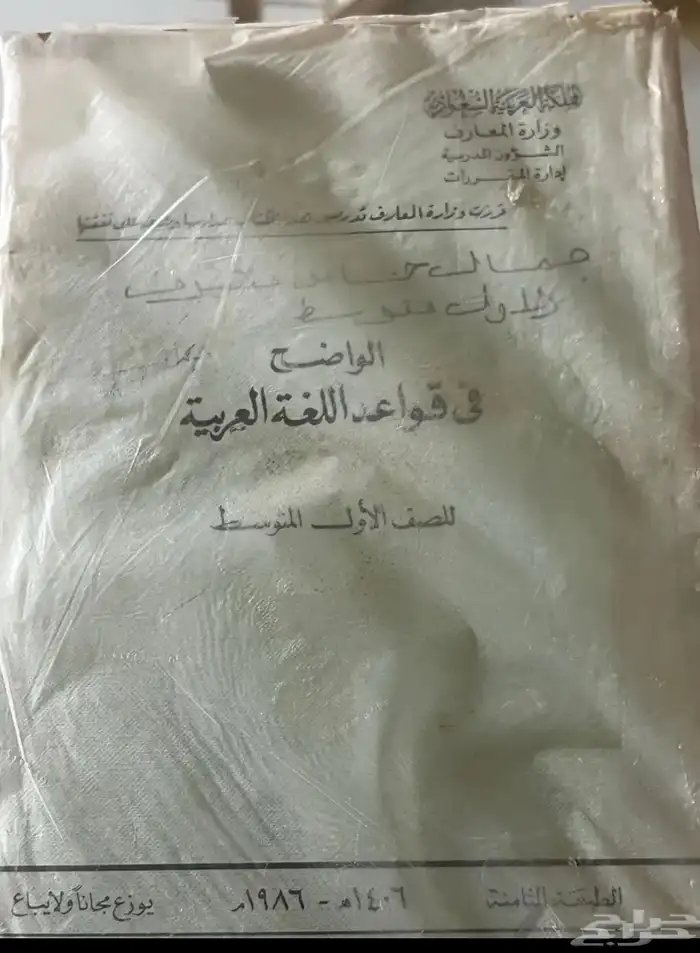 المملكة العربية السعودية
وزارة المعارف
الشؤون المدرسية
إدارة المقررات
قررت وزارة المعارف تدريس هذا الكتاب بمدارسها وطبعه على نفقتها
جمال
الأول متوسط
الواضح
في قواعد اللغة العربية
للصف الأول المتوسط
الطبعة الثامنة
١٤٠٦هـ - ١٩٨٦م
يوزع مجاناً ولا يباع
حراج